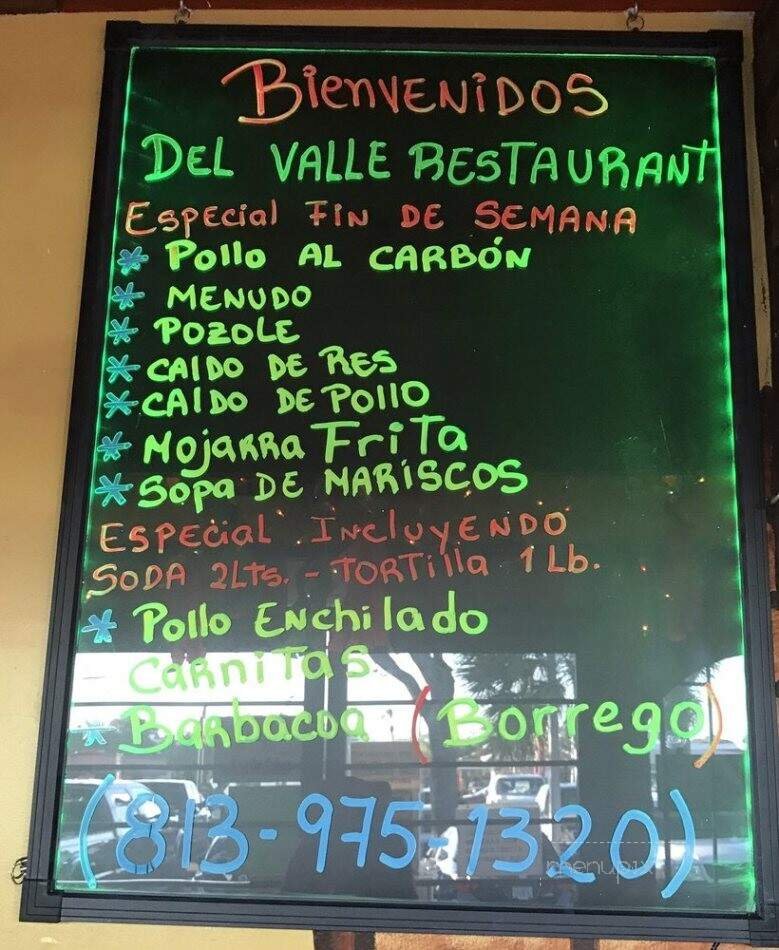 BIENVENIDOS
DEL VALLE RESTAURANT
ESPECIAL FIN DE SEMANA
* Pollo AL CARBÓN
* MENUDO
* POZOLE
* CAlDO DE RES
* CAlDO DE POllO
* MOJARRA FRITA
* SOPA DE MARÍSCOS
ESPECIAL INCLUYENDO
SODA 2LTS. - TORTILLA 1 Lb.
* Pollo ENCHILADO
CARNITAS
* BARBACOA (BORREGO)
(813-975-1320)
menupix